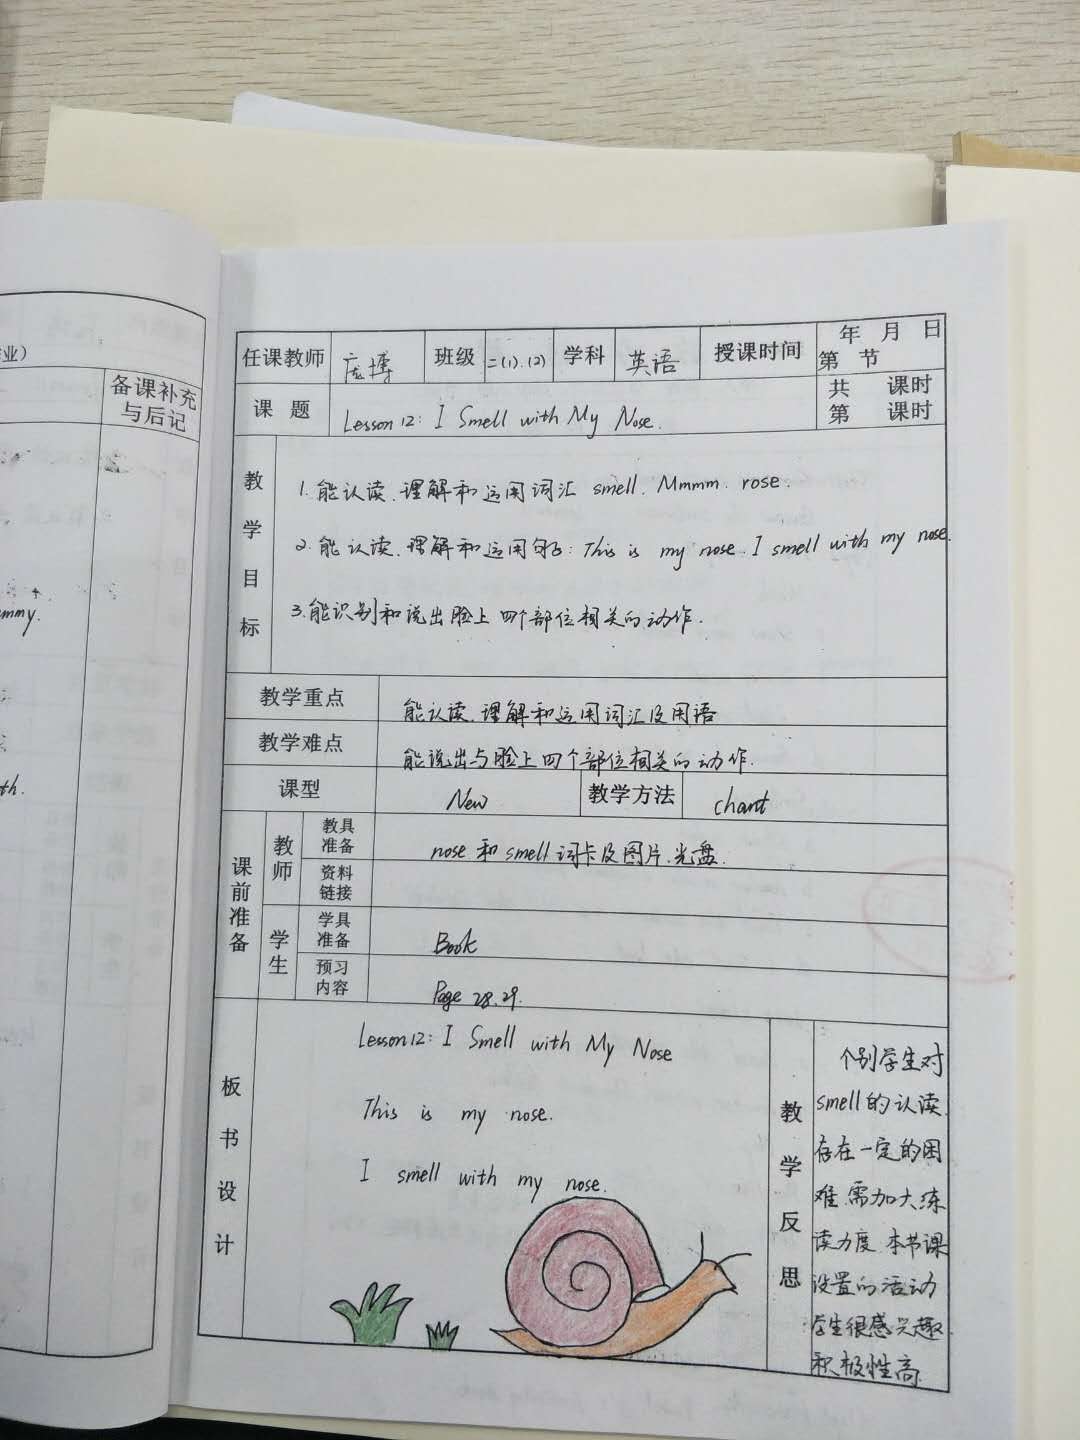 业）
备课补充
与后记
mmy.
th.
任课教师 庞博 班级 二(1).(2) 学科 英语 授课时间 年 月 日
第 节
课 题 Lesson 12: I Smell with My Nose. 共 课时
第 课时
教学目标
1.能认读.理解和运用词汇 smell. Mmmm. rose.
2.能认读.理解和运用句子: This is my nose. I smell with my nose.
3.能识别和说出脸上四个部位相关的动作.
教学重点 能认读.理解和运用词汇及用语
教学难点 能说出与脸上四个部位相关的动作.
课型 New 教学方法 chant
课前准备
教师 教具准备 nose 和 smell 词卡及图片.光盘.
资料链接
学生 学具准备 Book
预习内容 Page 28.29.
板书设计
Lesson 12: I Smell with My Nose
This is my nose.
I smell with my nose.
教学反思
个别学生对
smell的认读
存在一定的困
难.需加大练
读力度.本节课
设置的活动
学生很感兴趣.
积极性高.